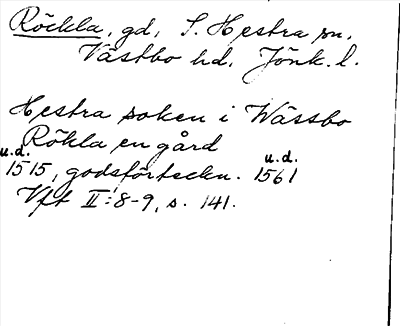 Röckla, gd, S. Hestra sn,
Västbo hd, Jönk. l.
Hestra soken i Wässbo
Rökla en gård
u.d. u.d.
1515, godsförteckn. 1561
Vft II: 8-9, s. 141.